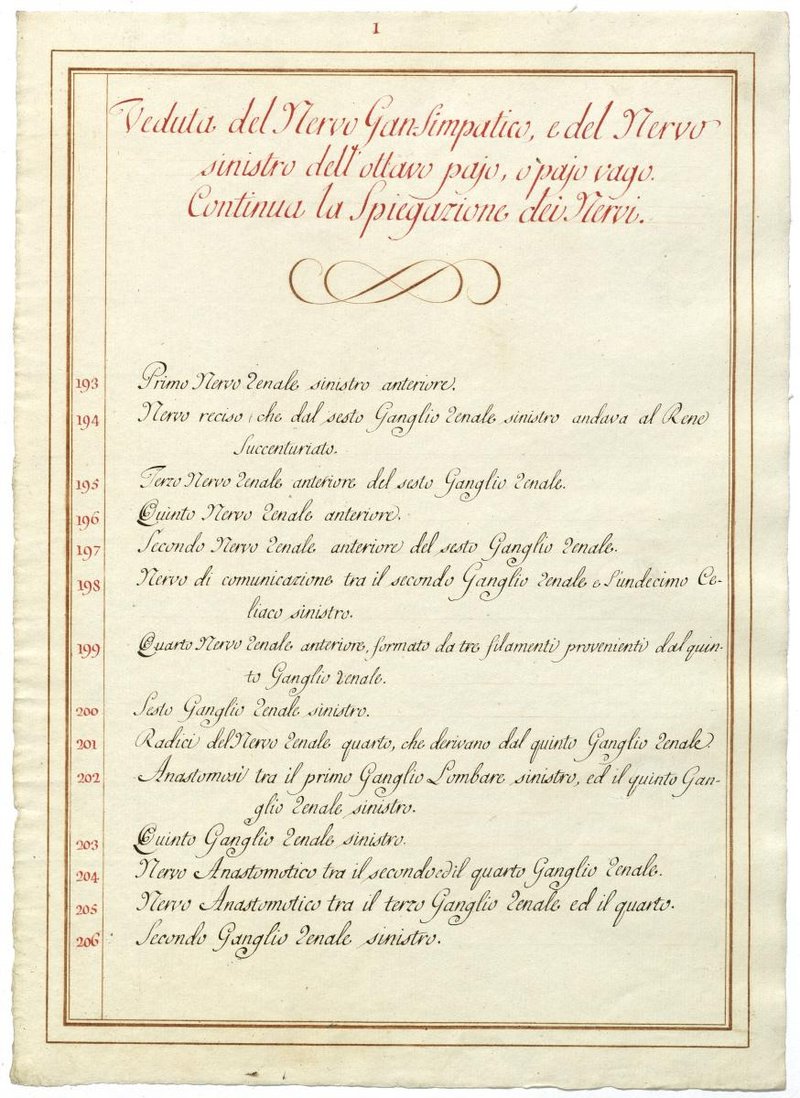 I
Veduta del Nervo Gansimpatico, e del Nervo
sinistro dell'ottavo pajo, o pajo vago.
Continua la Spiegazione dei Nervi.
193 Primo Nervo renale sinistro anteriore.
194 Nervo reciso, che dal sesto Ganglio renale sinistro andava al Rene
Succenturiato.
195 Terzo Nervo renale anteriore del sesto Ganglio renale.
196 Quinto Nervo renale anteriore.
197 Secondo Nervo renale anteriore del sesto Ganglio renale.
198 Nervo di comunicazione tra il secondo Ganglio renale e l'undecimo Ce-
liaco sinistro.
199 Quarto Nervo renale anteriore, formato da tre filamenti provenienti dal quin-
to Ganglio renale.
200 Sesto Ganglio renale sinistro.
201 Radici del Nervo renale quarto, che derivano dal quinto Ganglio renale.
202 Anastomosi tra il primo Ganglio Lombare sinistro, ed il quinto Gan-
glio renale sinistro.
203 Quinto Ganglio renale sinistro.
204 Nervo Anastomotico tra il secondo ed il quarto Ganglio renale.
205 Nervo Anastomotico tra il terzo Ganglio renale ed il quarto.
206 Secondo Ganglio renale sinistro.